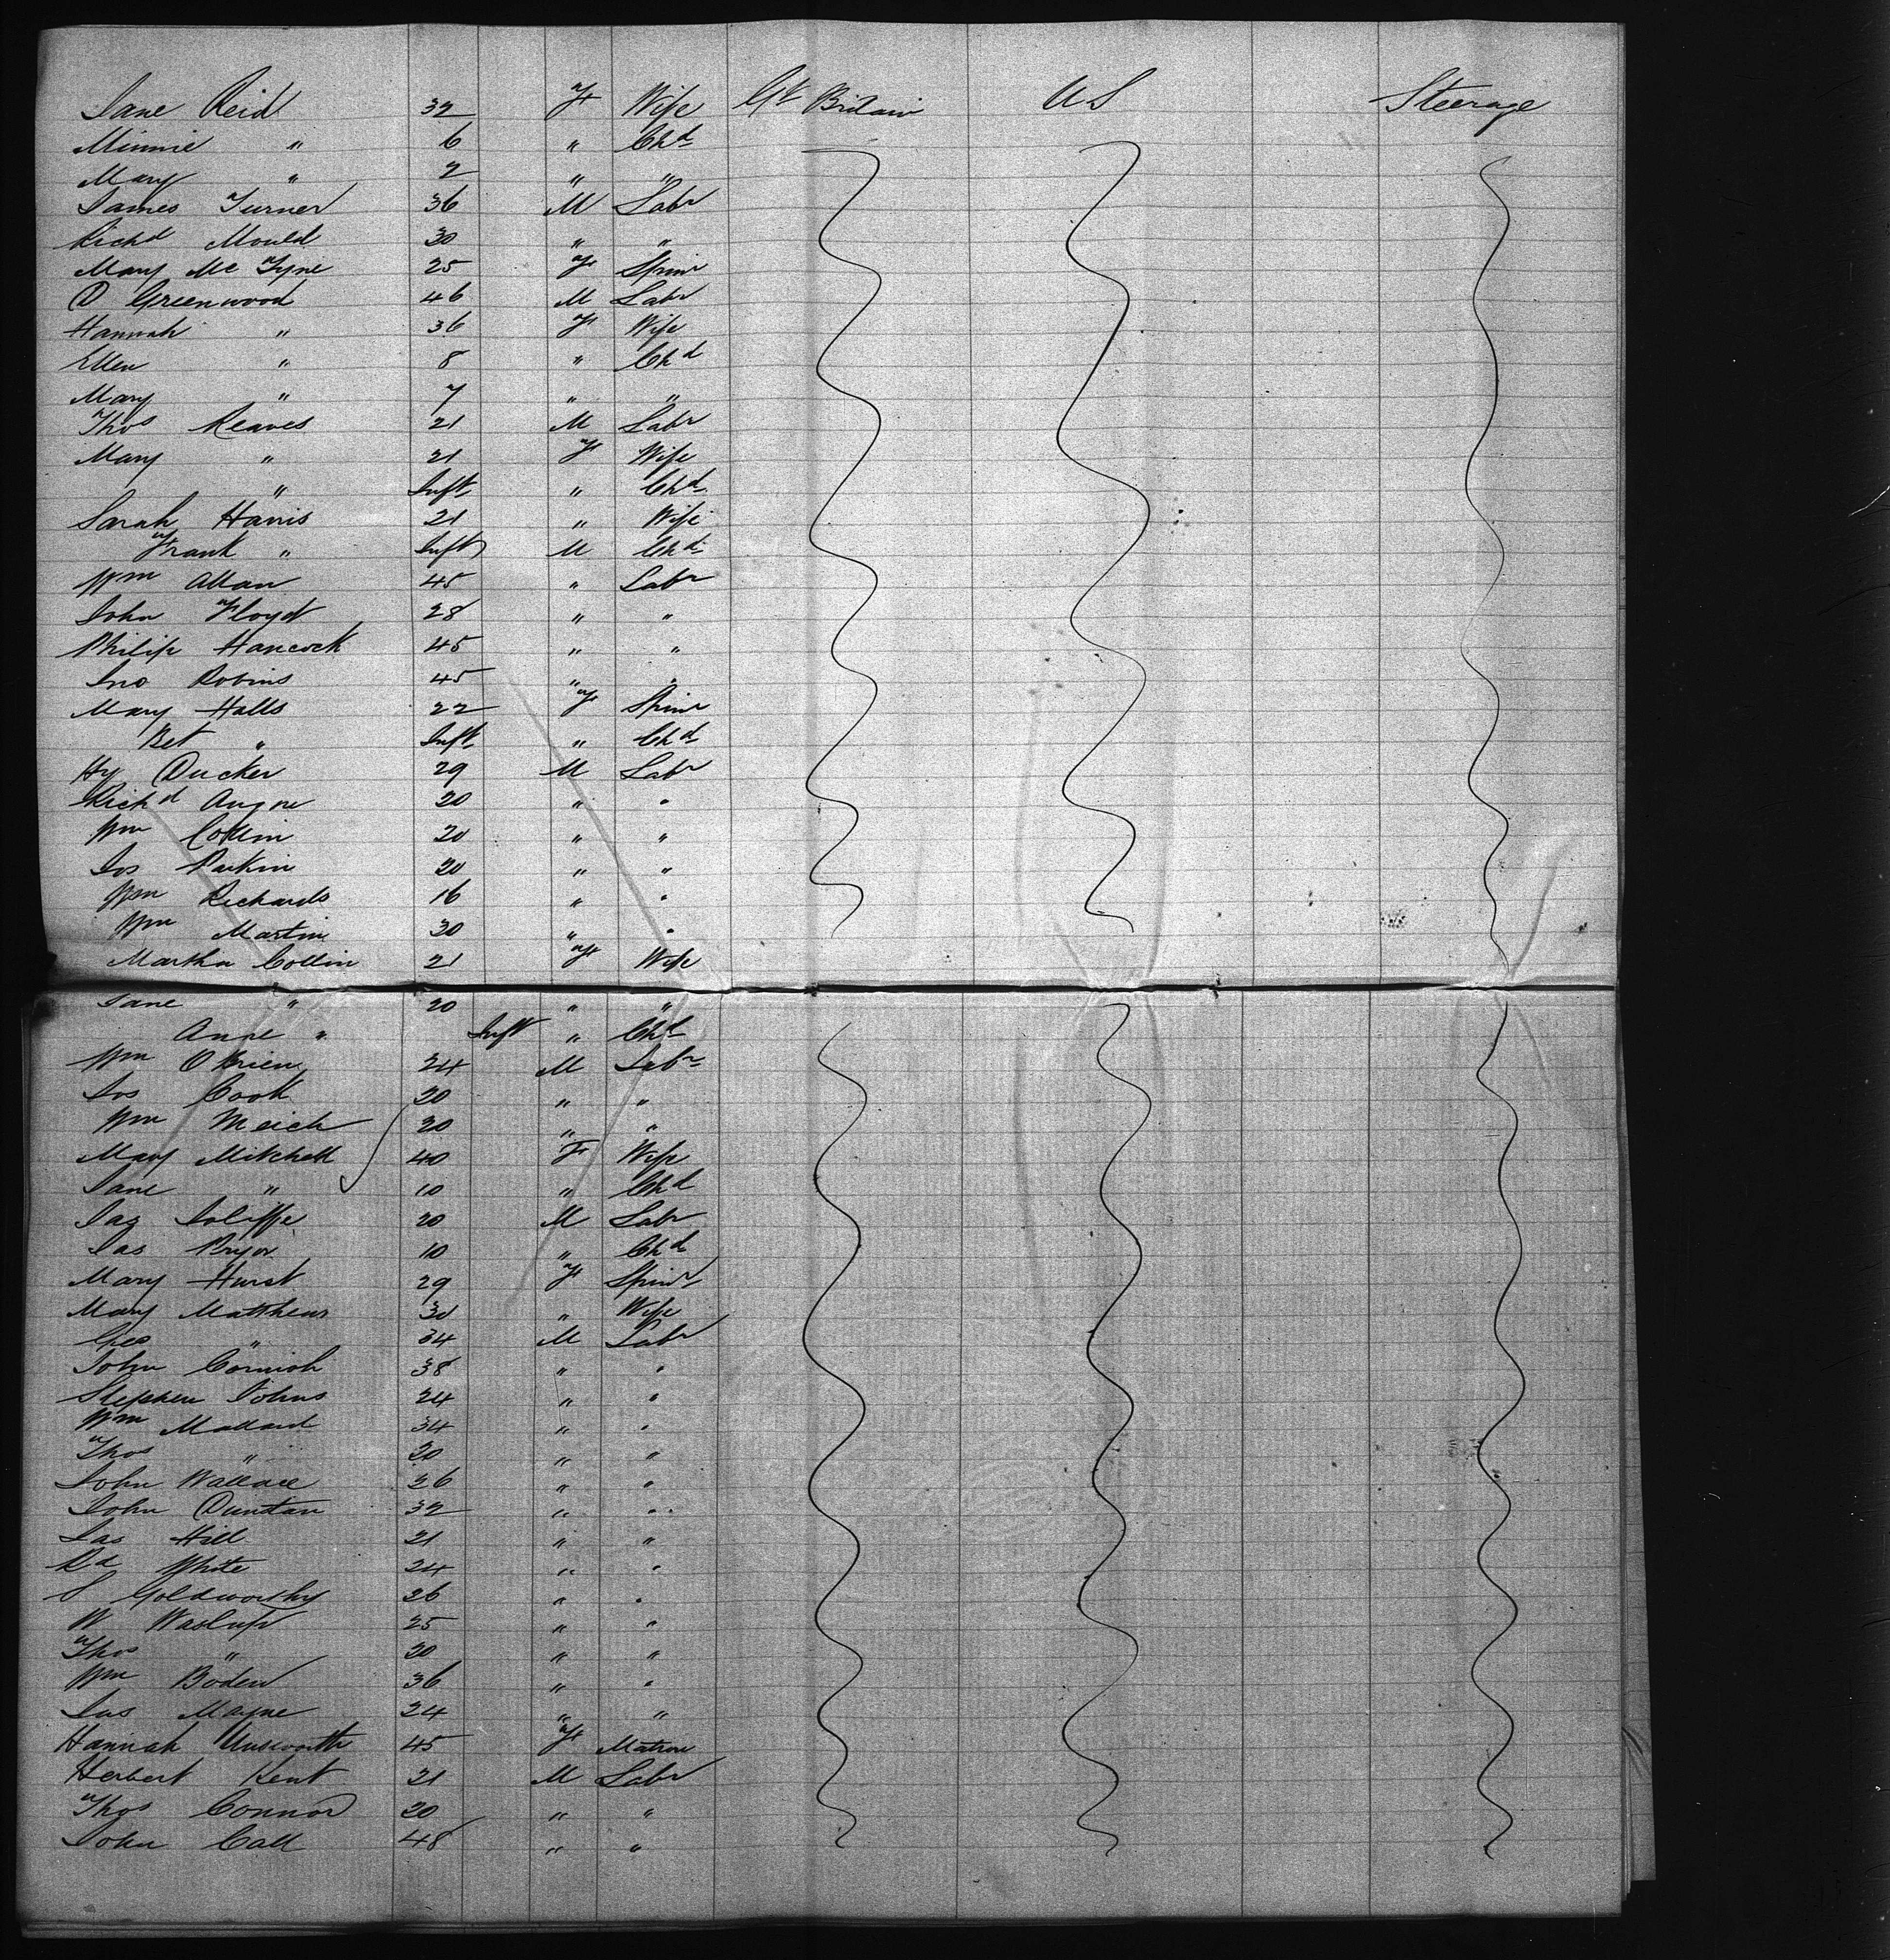 Jane Reid 32 F Wife Gt Britain U S Steerage
Minnie " 6 " Chd
Mary " 2 " "
James Turner 36 M Labr
Richd Mould 30 " "
Mary Mc Tyne 25 F Spinr
D Greenwood 46 M Labr
Hannah " 36 F Wife
Ellen " 8 " Chd
Mary " 7 " "
Thos Reaves 21 M Labr
Mary " 21 F Wife
" Inft " Chd
Sarah Harris 21 " Wife
Frank " Inft M Chd
Wm Allan 45 " Labr
John Floyd 28 " "
Philip Hancock 45 " "
Jno Robins 45 " "
Mary Halls 22 F Spinr
Bet " Inft " Chd
Hy Ducker 29 M Labr
Richd Angne 20 " "
Wm Collin 20 " "
Jos Parkin 20 " "
Wm Richards 16 " "
Wm Martin 30 " "
Martha Collin 21 F Wife
Jane " 20 " "
Anne " Inft " Chd
Wm O'Brien 24 M Labr
Jos Cook 20 " "
Wm Meich 20 " "
Mary Mitchell 40 F Wife
Jane " 10 " Chd
Jas Joliffe 20 M Labr
Jas Pryor 10 " Chd
Mary Hurst 29 F Spinr
Mary Matthews 30 " Wife
Geo " 34 M Labr
John Cornish 38 " "
Stephen Johns 24 " "
Wm Mallard 34 " "
Thos " 20 " "
John Wallace 26 " "
John Dunstan 32 " "
Jas Hill 21 " "
Rd White 24 " "
S Goldworthy 26 " "
W Waslup 25 " "
Thos " 20 " "
Wm Boden 36 " "
Jas Mayne 24 " "
Hannah Unsworth 45 F Matron
Herbert Kent 21 M Labr
Thos Connor 20 " "
John Call 48 " "